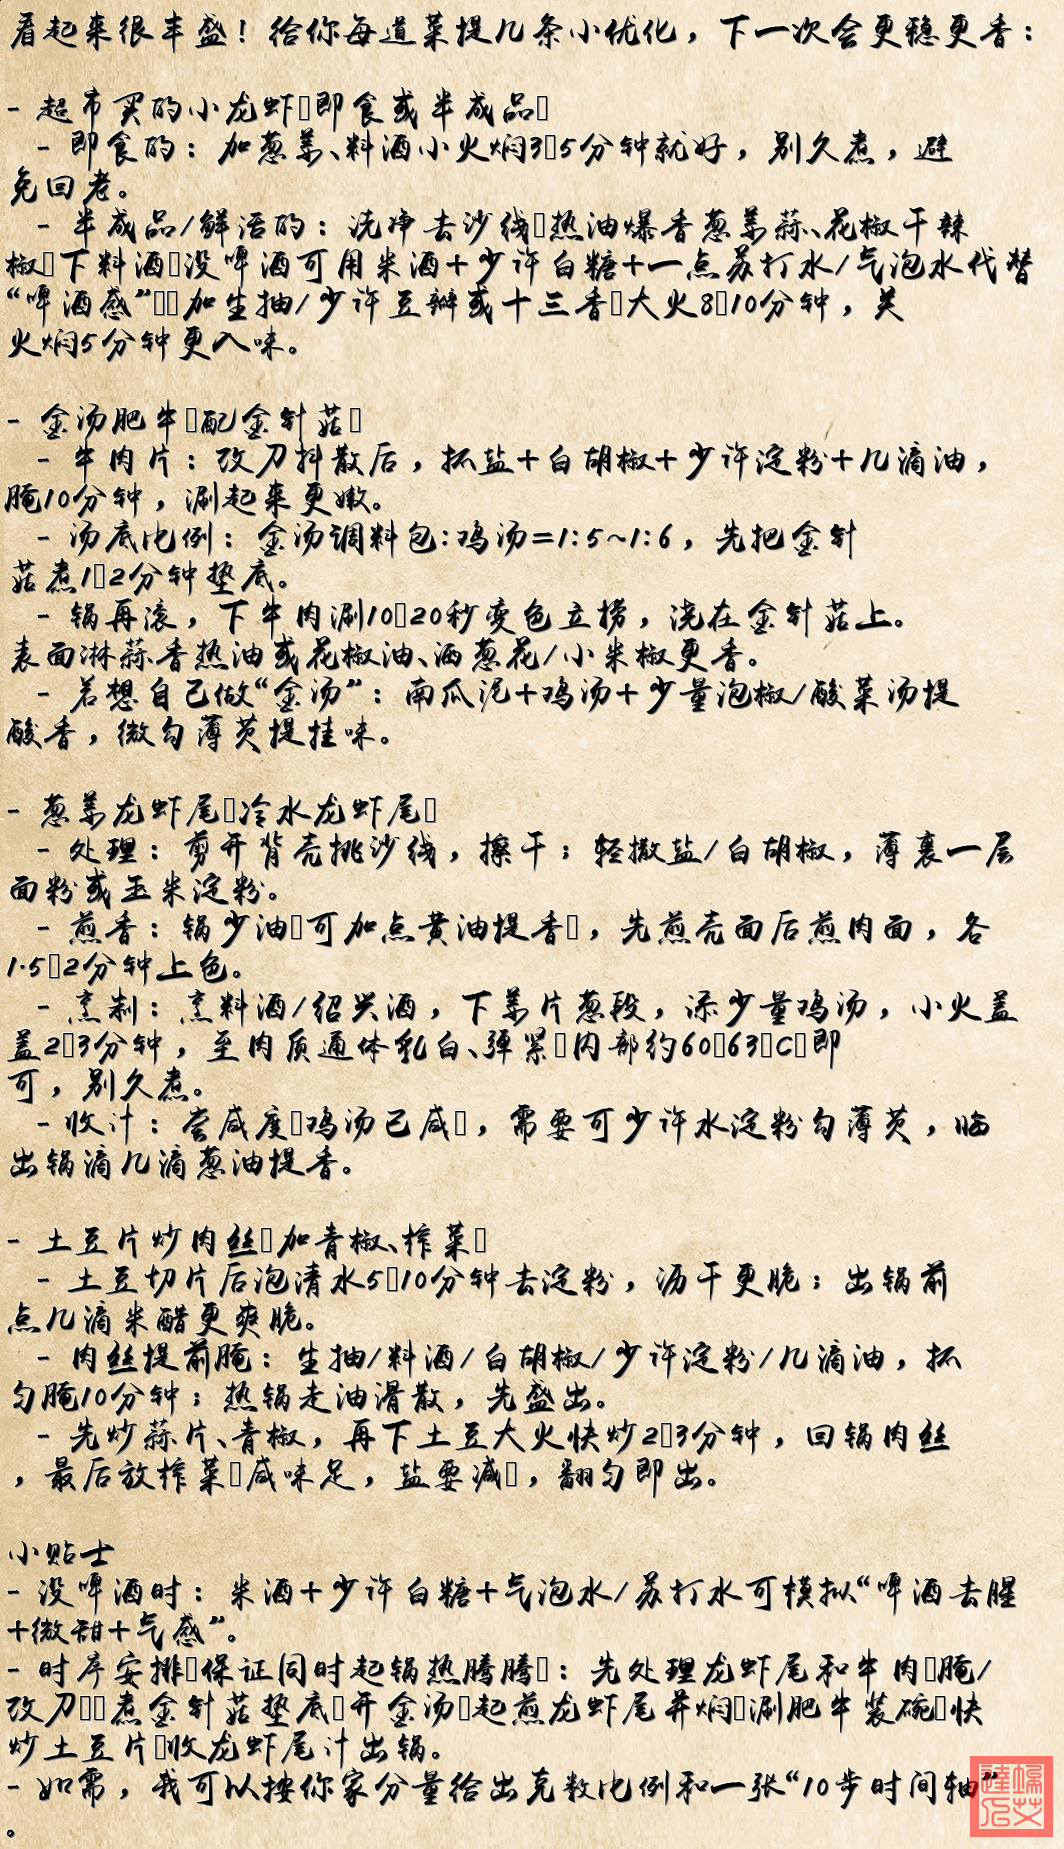 看起来很丰盛！给你每道菜提几条小优化，下一次会更稳更香：
- 超市买的小龙虾▯即食或半成品▯
- 即食的：加葱姜、料酒小火焖3▯5分钟就好，别久煮，避
免回老。
- 半成品/鲜活的：洗净去沙线▯热油爆香葱姜蒜、花椒干辣
椒▯下料酒▯没啤酒可用米酒+少许白糖+一点苏打水/气泡水代替
“啤酒感”▯▯加生抽/少许豆瓣或十三香▯大火8▯10分钟，关
火焖5分钟更入味。
- 金汤肥牛▯配金针菇▯
- 牛肉片：改刀抖散后，抓盐+白胡椒+少许淀粉+几滴油，
腌10分钟，涮起来更嫩。
- 汤底比例：金汤调料包:鸡汤=1:5~1:6，先把金针
菇煮1▯2分钟垫底。
- 锅再滚，下牛肉涮10▯20秒变色立捞，浇在金针菇上。
表面淋蒜香热油或花椒油、洒葱花/小米椒更香。
- 若想自己做“金汤”：南瓜泥+鸡汤+少量泡椒/酸菜汤提
酸香，微勾薄芡提挂味。
- 葱姜龙虾尾▯冷水龙虾尾▯
- 处理：剪开背壳挑沙线，擦干；轻撒盐/白胡椒，薄裹一层
面粉或玉米淀粉。
- 煎香：锅少油▯可加点黄油提香▯，先煎壳面后煎肉面，各
1.5▯2分钟上色。
- 烹制：烹料酒/绍兴酒，下姜片葱段，添少量鸡汤，小火盖
盖2▯3分钟，至肉质通体乳白、弹紧▯内部约60▯63▯C▯即
可，别久煮。
- 收汁：尝咸度▯鸡汤已咸▯，需要可少许水淀粉勾薄芡，临
出锅滴几滴葱油提香。
- 土豆片炒肉丝▯加青椒、榨菜▯
- 土豆切片后泡清水5▯10分钟去淀粉，沥干更脆；出锅前
点几滴米醋更爽脆。
- 肉丝提前腌：生抽/料酒/白胡椒/少许淀粉/几滴油，抓
匀腌10分钟；热锅走油滑散，先盛出。
- 先炒蒜片、青椒，再下土豆大火快炒2▯3分钟，回锅肉丝
，最后放榨菜▯咸味足，盐要减▯，翻匀即出。
小贴士
- 没啤酒时：米酒+少许白糖+气泡水/苏打水可模拟“啤酒去腥
+微甜+气感”。
- 时序安排▯保证同时起锅热腾腾▯：先处理龙虾尾和牛肉▯腌/
改刀▯▯煮金针菇垫底▯开金汤▯起煎龙虾尾并焖▯涮肥牛装碗▯快
炒土豆片▯收龙虾尾汁出锅。
- 如需，我可以按你家分量给出克数比例和一张“10步时间轴”
。